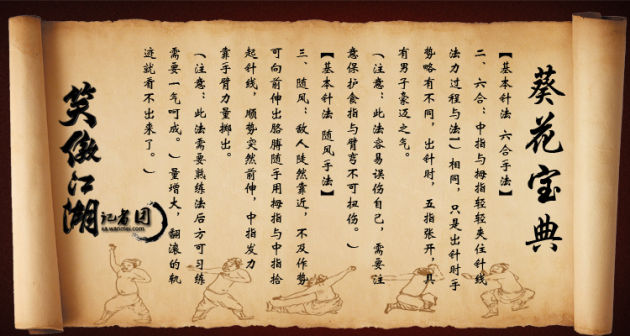 葵花宝典
【基本针法 六合手法】
二、六合：中指与拇指轻轻夹住针线
法力过程与法1）相同，只是出针时手
势略有不同，出针时，五指张开，具
有男子豪迈之气。
（注意：此法容易误伤自己，需要注
意保护食指与臂弯不可扭伤。）
【基本针法 随风手法】
三、随风：敌人陡然靠近，不及作势
可向前伸出胳膊随手用拇指与中指拾
起针线，顺势突然前伸，中指发力
靠手臂力量掷出。
（注意：此法需要熟练法后方可习练
需要一气呵成。）量增大，翻滚的轨
迹就看不出来了。）
笑傲江湖
记者团
xa.wanmei.com